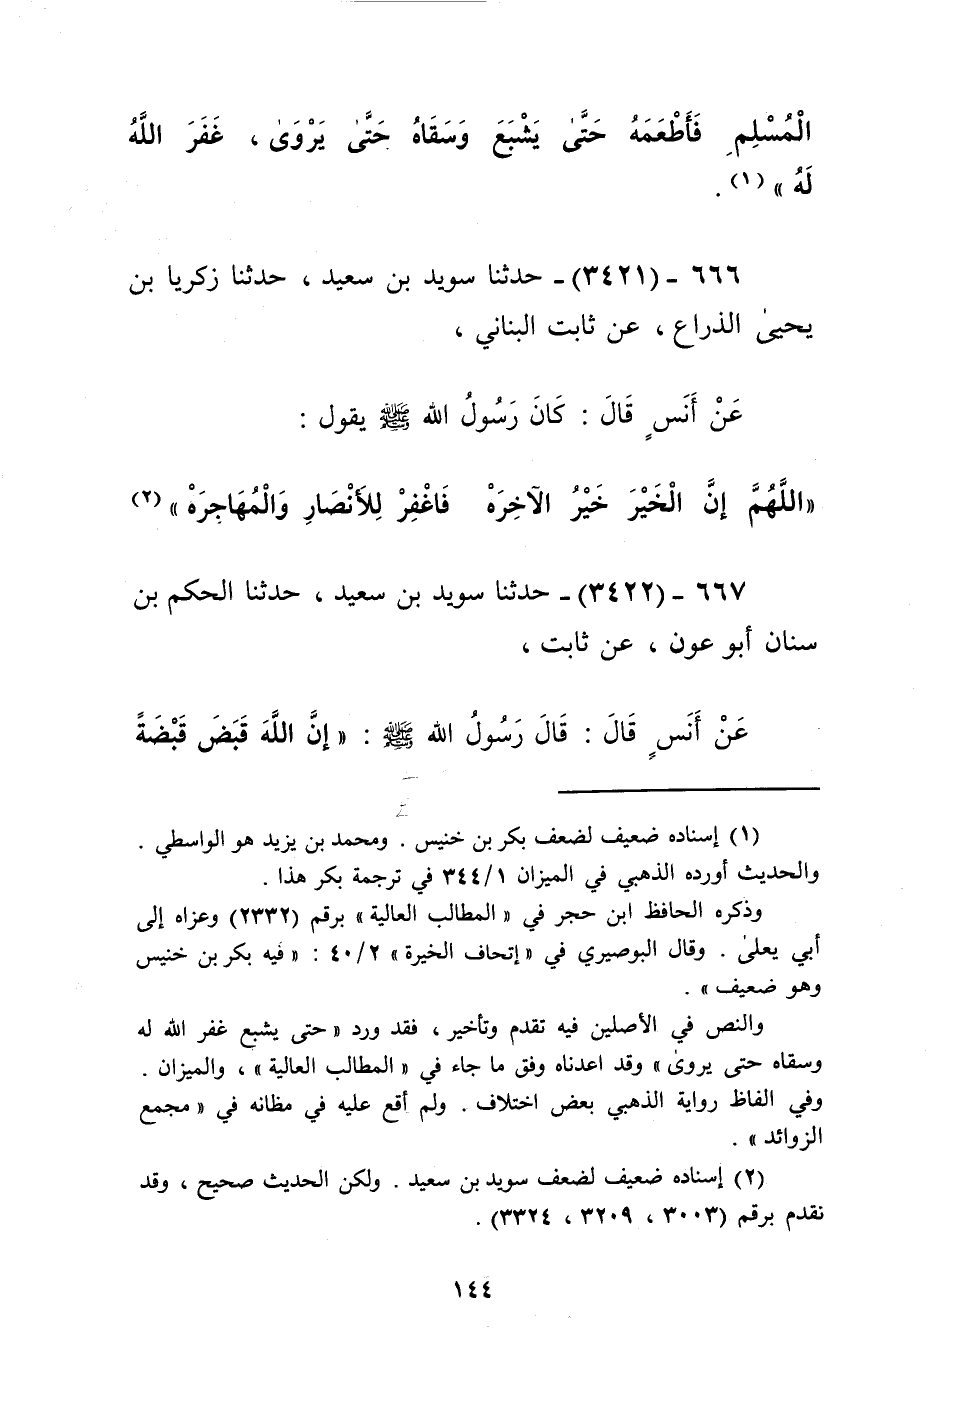 الْمُسْلِمِ فَأَطْعَمَهُ حَتَّىٰ يَشْبَعَ وَسَقَاهُ حَتَّىٰ يَرْوَىٰ ، غَفَرَ اللَّهُ
لَهُ » (١) .
٦٦٦ ـ (٣٤٢١) ـ حدثنا سويد بن سعيد ، حدثنا زكريا بن
يحيىٰ الذراع ، عن ثابت البناني ،
عَنْ أَنَسٍ قَالَ : كَانَ رَسُولُ الله ﷺ يقول :
«اللَّهُمَّ إِنَّ الْخَيْرَ خَيْرُ الآخِرَهْ فَاغْفِرْ لِلأَنْصَارِ وَالْمُهَاجِرَهْ» (٢)
٦٦٧ ـ (٣٤٢٢) ـ حدثنا سويد بن سعيد ، حدثنا الحكم بن
سنان أبو عون ، عن ثابت ،
عَنْ أَنَسٍ قَالَ : قَالَ رَسُولُ الله ﷺ : « إِنَّ اللَّهَ قَبَضَ قَبْضَةً
(١) إسناده ضعيف لضعف بكر بن خنيس . ومحمد بن يزيد هو الواسطي .
والحديث أورده الذهبي في الميزان ٣٤٤/١ في ترجمة بكر هذا .
وذكره الحافظ ابن حجر في « المطالب العالية » برقم (٢٣٣٢) وعزاه إلى
أبي يعلىٰ . وقال البوصيري في « إتحاف الخيرة » ٤٠/٢ : « فيه بكر بن خنيس
وهو ضعيف » .
والنص في الأصلين فيه تقدم وتأخير ، فقد ورد « حتى يشبع غفر الله له
وسقاه حتى يروىٰ » وقد اعدناه وفق ما جاء في « المطالب العالية » ، والميزان .
وفي الفاظ رواية الذهبي بعض اختلاف . ولم أقع عليه في مظانه في « مجمع
الزوائد » .
(٢) إسناده ضعيف لضعف سويد بن سعيد . ولكن الحديث صحيح ، وقد
تقدم برقم (٣٠٠٣ ، ٣٢٠٩ ، ٣٣٢٤) .
١٤٤